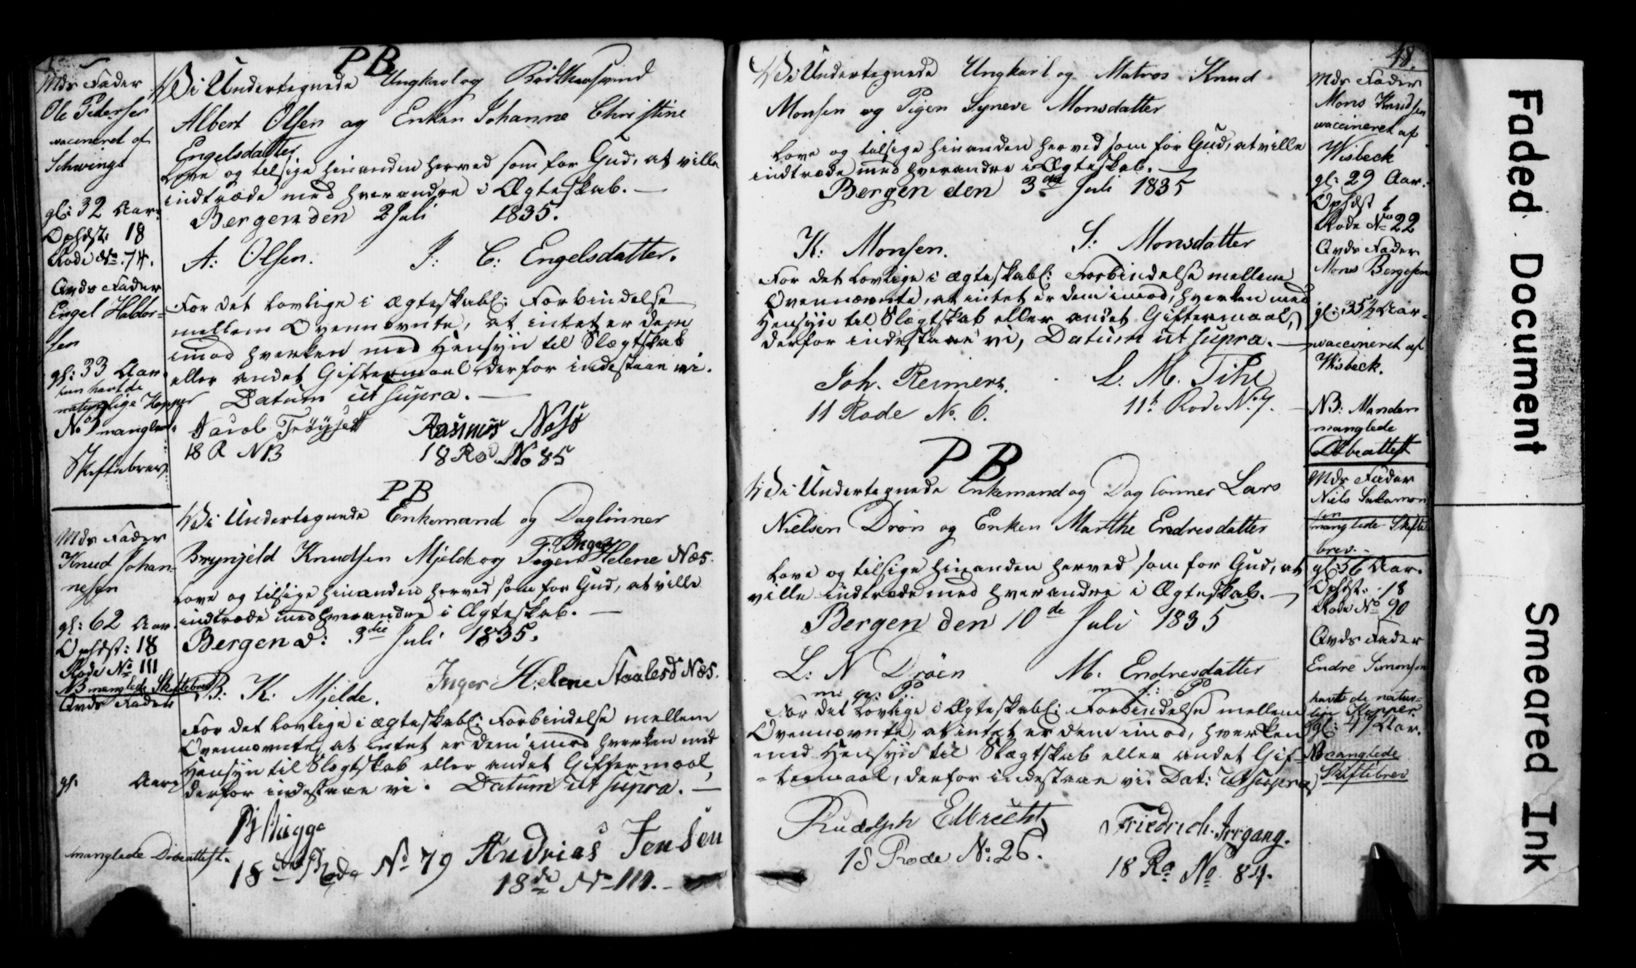 PB
Mds Fader
Ole Pedersen
vaccineret af
Schwings
gl: 32 Aar.
Ophdst: 18
Rode No. 74.
Qvds Fader
Engel Haldor-
sen
gl: 33 Aar.
hun havt de
naturlige Kopper
No manglende
Skiftebrev.
Vi Undertegnede Ungkarl og
Albert Olsen og Enken Johanne Christine
Engelsdatter
Love og tilsige hinanden herved som for Gud, at ville
indtræde med hverandre i Ægteskab. —
Bergen den 2 Juli 1835.
A: Olsen. J: C: Engelsdatter.
For det Lovlige i ægteskabl: Forbindelse
mellem Ovennævnte, at intet er dem
imod hverken med Hensyn til Slægtskab
eller andet Giftermaal, derfor indestaae vi.
Datum ut supra. —
Jacob Rasmus
18 R N 13 18 Ro No 85
PB
Mds Fader
Knud Johan-
nesen
gl: 62 Aar
Ophdst: 18
Rode No 111
NB manglede Skiftebrev
Qvds Fader
gl: Aar
manglede Døbeattest.
Vi Undertegnede Enkemand og Daglønner
Brynjeld Knudsen Mjelde og Pigen Inger Helene Næs.
Love og tilsige hinanden herved som for Gud, at ville
indtræde med hverandre i Ægteskab. —
Bergen d: 3die Juli 1835.
B: K: Mjelde. Inger Helene Staalesd Næs.
For det Lovlige i ægteskabl: Forbindelse mellem
Ovennævnte, at intet er dem imod hverken med
Hensyn til Slægtskab eller andet Giftermaal,
derfor indestaae vi. Datum ut supra. —
Andreas Jensen
18de Rode No 79 18de No 111.
48.
Vi Undertegnede Ungkarl og Matros Knud
Monsen og Pigen Syneve Monsdatter
Love og tilsige hinanden herved som for Gud, at ville
indtræde med hverandre i Ægteskab. —
Bergen den 3die Juli 1835
K: Monsen. S: Monsdatter
For det Lovlige i ægteskabl: Forbindelse mellem
Ovennævnte, at intet er dem imod, hverken med
Hensyn til Slægtskab eller andet Giftermaal,
derfor indestaae vi, Datum ut supra. —
Joh. Reimers. L. M. Tihl
11 Rode No. 6. 11te Rode No 7.
Mds Fader
Mons Knudsen
vaccineret af
Wisbeck
gl: 29 Aar.
Ophdst
Rode No 22
Qvds Fader
Mons Bergesen
gl: 35½ Aar.
vaccineret af
Wisbeck.
NB: Manden
manglede
Døbeattest
PB
Vi Undertegnede Enkemand og Daglønner Lars
Nielsen Drøn og Enken Marthe Endresdatter
Love og tilsige hinanden herved som for Gud, at
ville indtræde med hverandre i Ægteskab. —
Bergen den 10de Juli 1835
L: N Drøen M: Endresdatter
m: p: P. m: p: P
For det Lovlige i Ægteskabl: Forbindelse mellem
Ovennævnte, at intet er dem imod, hverken
med Hensyn til Slægtskab eller andet Gif-
termaal, derfor indestaae vi. Dat: ut supra
Rudolph Friedrich Irrgang.
18 Rode No. 26. 18 Ro No 84.
Mds Fader
Niels Salamon
sen
manglede Skifte
brev.
gl: 56 Aar.
Ophdst: 18
Rode No 90
Qvds Fader
Endre Simonsen
havt de natur-
lige Kopper.
gl: 47 Aar.
Manglede
Skiftebrev
Faded Document
Smeared Ink